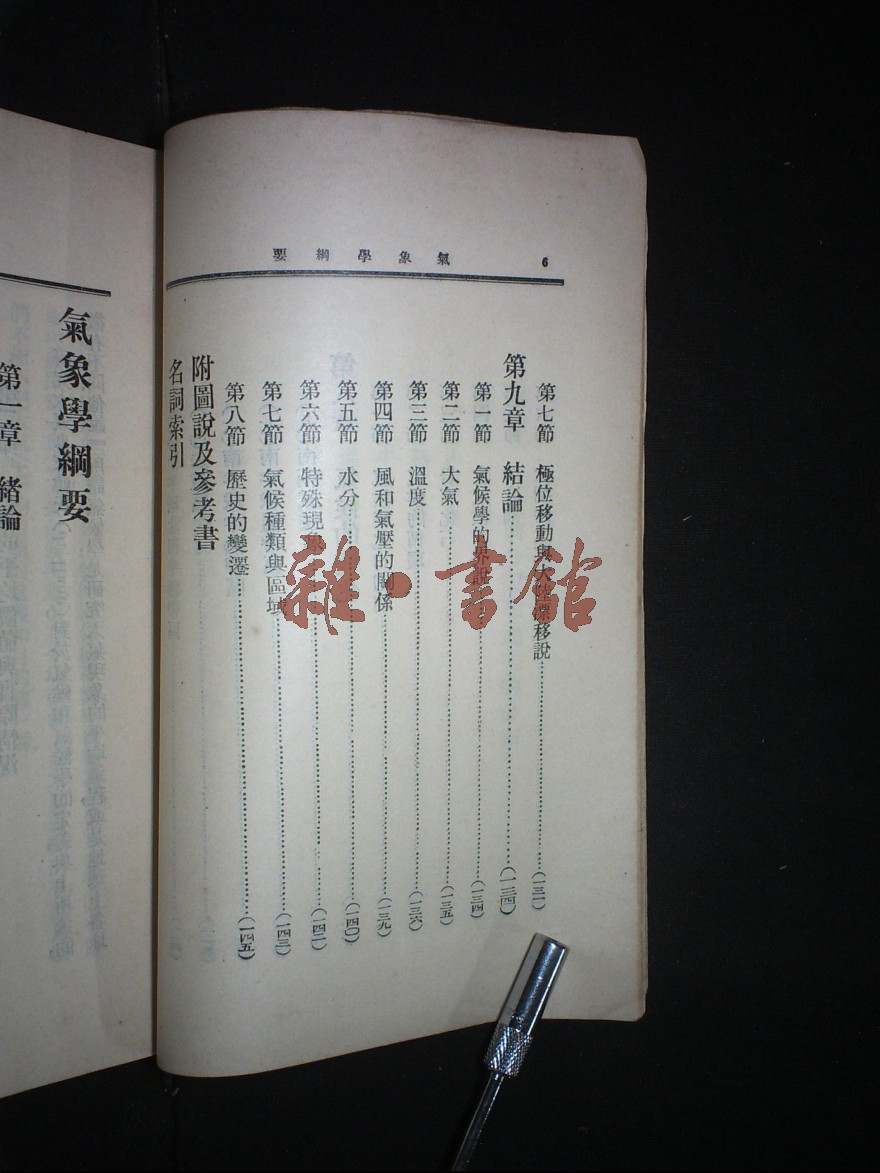 氣象學綱要
6
第七節 極位移動與大陸漂移說…………(一三一)
第九章 結論…………(一三四)
第一節 氣候學的界說…………(一三四)
第二節 大氣…………(一三五)
第三節 溫度…………(一三六)
第四節 風和氣壓的關係…………(一三九)
第五節 水分…………(一四〇)
第六節 特殊現象…………(一四二)
第七節 氣候種類與區域…………(一四三)
第八節 歷史的變遷…………(一四五)
附圖說及參考書
名詞索引
氣象學綱要
第一章 緒論
雜·書館